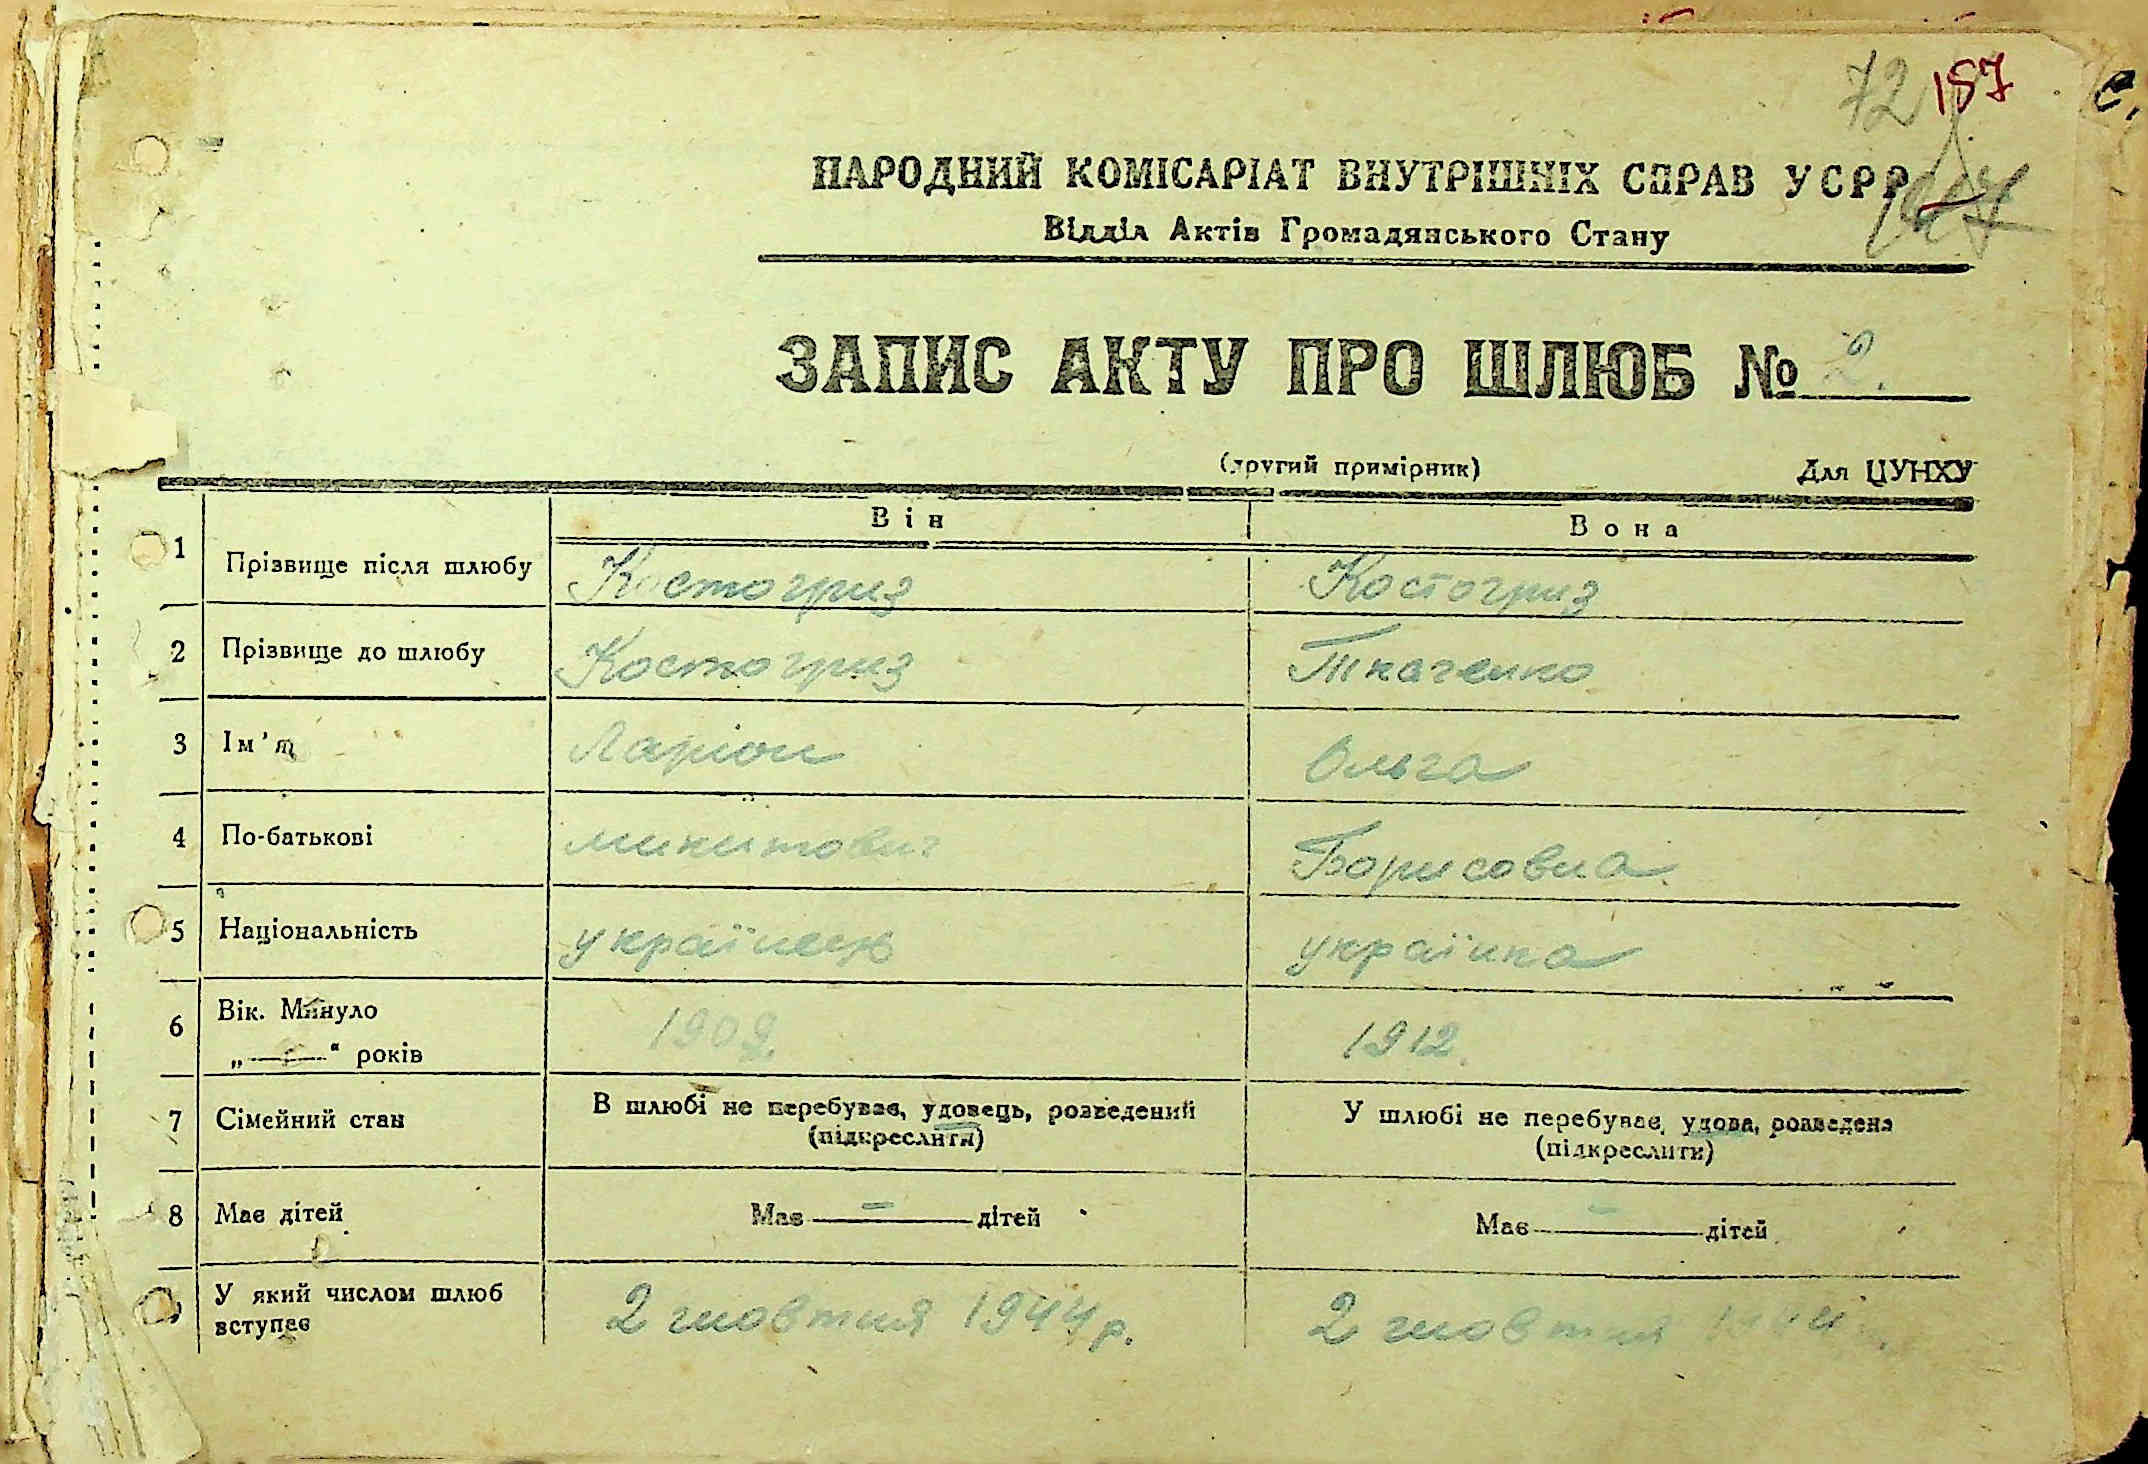 72 157
НАРОДНИЙ КОМІСАРІАТ ВНУТРІШНІХ СПРАВ УСРР
Відділ Актів Громадянського Стану
ЗАПИС АКТУ ПРО ШЛЮБ № 2.
(другий примірник) Для ЦУНХУ
Він Вона
1 Прізвище після шлюбу Костогриз Костогриз
2 Прізвище до шлюбу Костогриз Ткаченко
3 Ім'я Ларіон Ольга
4 По-батькові микитович Борисовна
5 Національність українець українка
6 Вік. Минуло 1909. 1912.
„——“ років
7 Сімейний стан В шлюбі не перебуває, удовець, розведений У шлюбі не перебуває, удова, розведена
(підкреслити) (підкреслити)
8 Має дітей Має — дітей Має — дітей
У який числом шлюб 2 жовтня 1944 р. 2 жовтня 1944
вступає